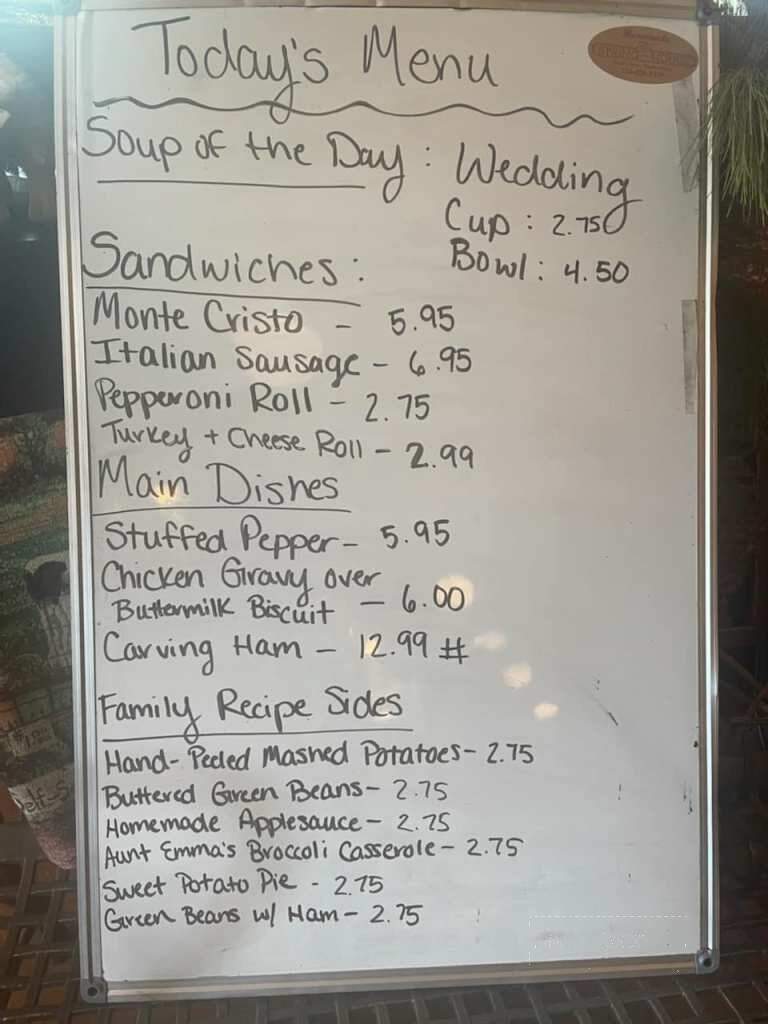 Today's Menu
Soup of the Day: Wedding
Cup: 2.75
Bowl: 4.50
Sandwiches:
Monte Cristo - 5.95
Italian Sausage - 6.95
Pepperoni Roll - 2.75
Turkey + Cheese Roll - 2.99
Main Dishes
Stuffed Pepper - 5.95
Chicken Gravy over
Buttermilk Biscuit - 6.00
Carving Ham - 12.99 #
Family Recipe Sides
Hand-Peeled Mashed Potatoes - 2.75
Buttered Green Beans - 2.75
Homemade Applesauce - 2.75
Aunt Emma's Broccoli Casserole - 2.75
Sweet Potato Pie - 2.75
Green Beans w/ Ham - 2.75